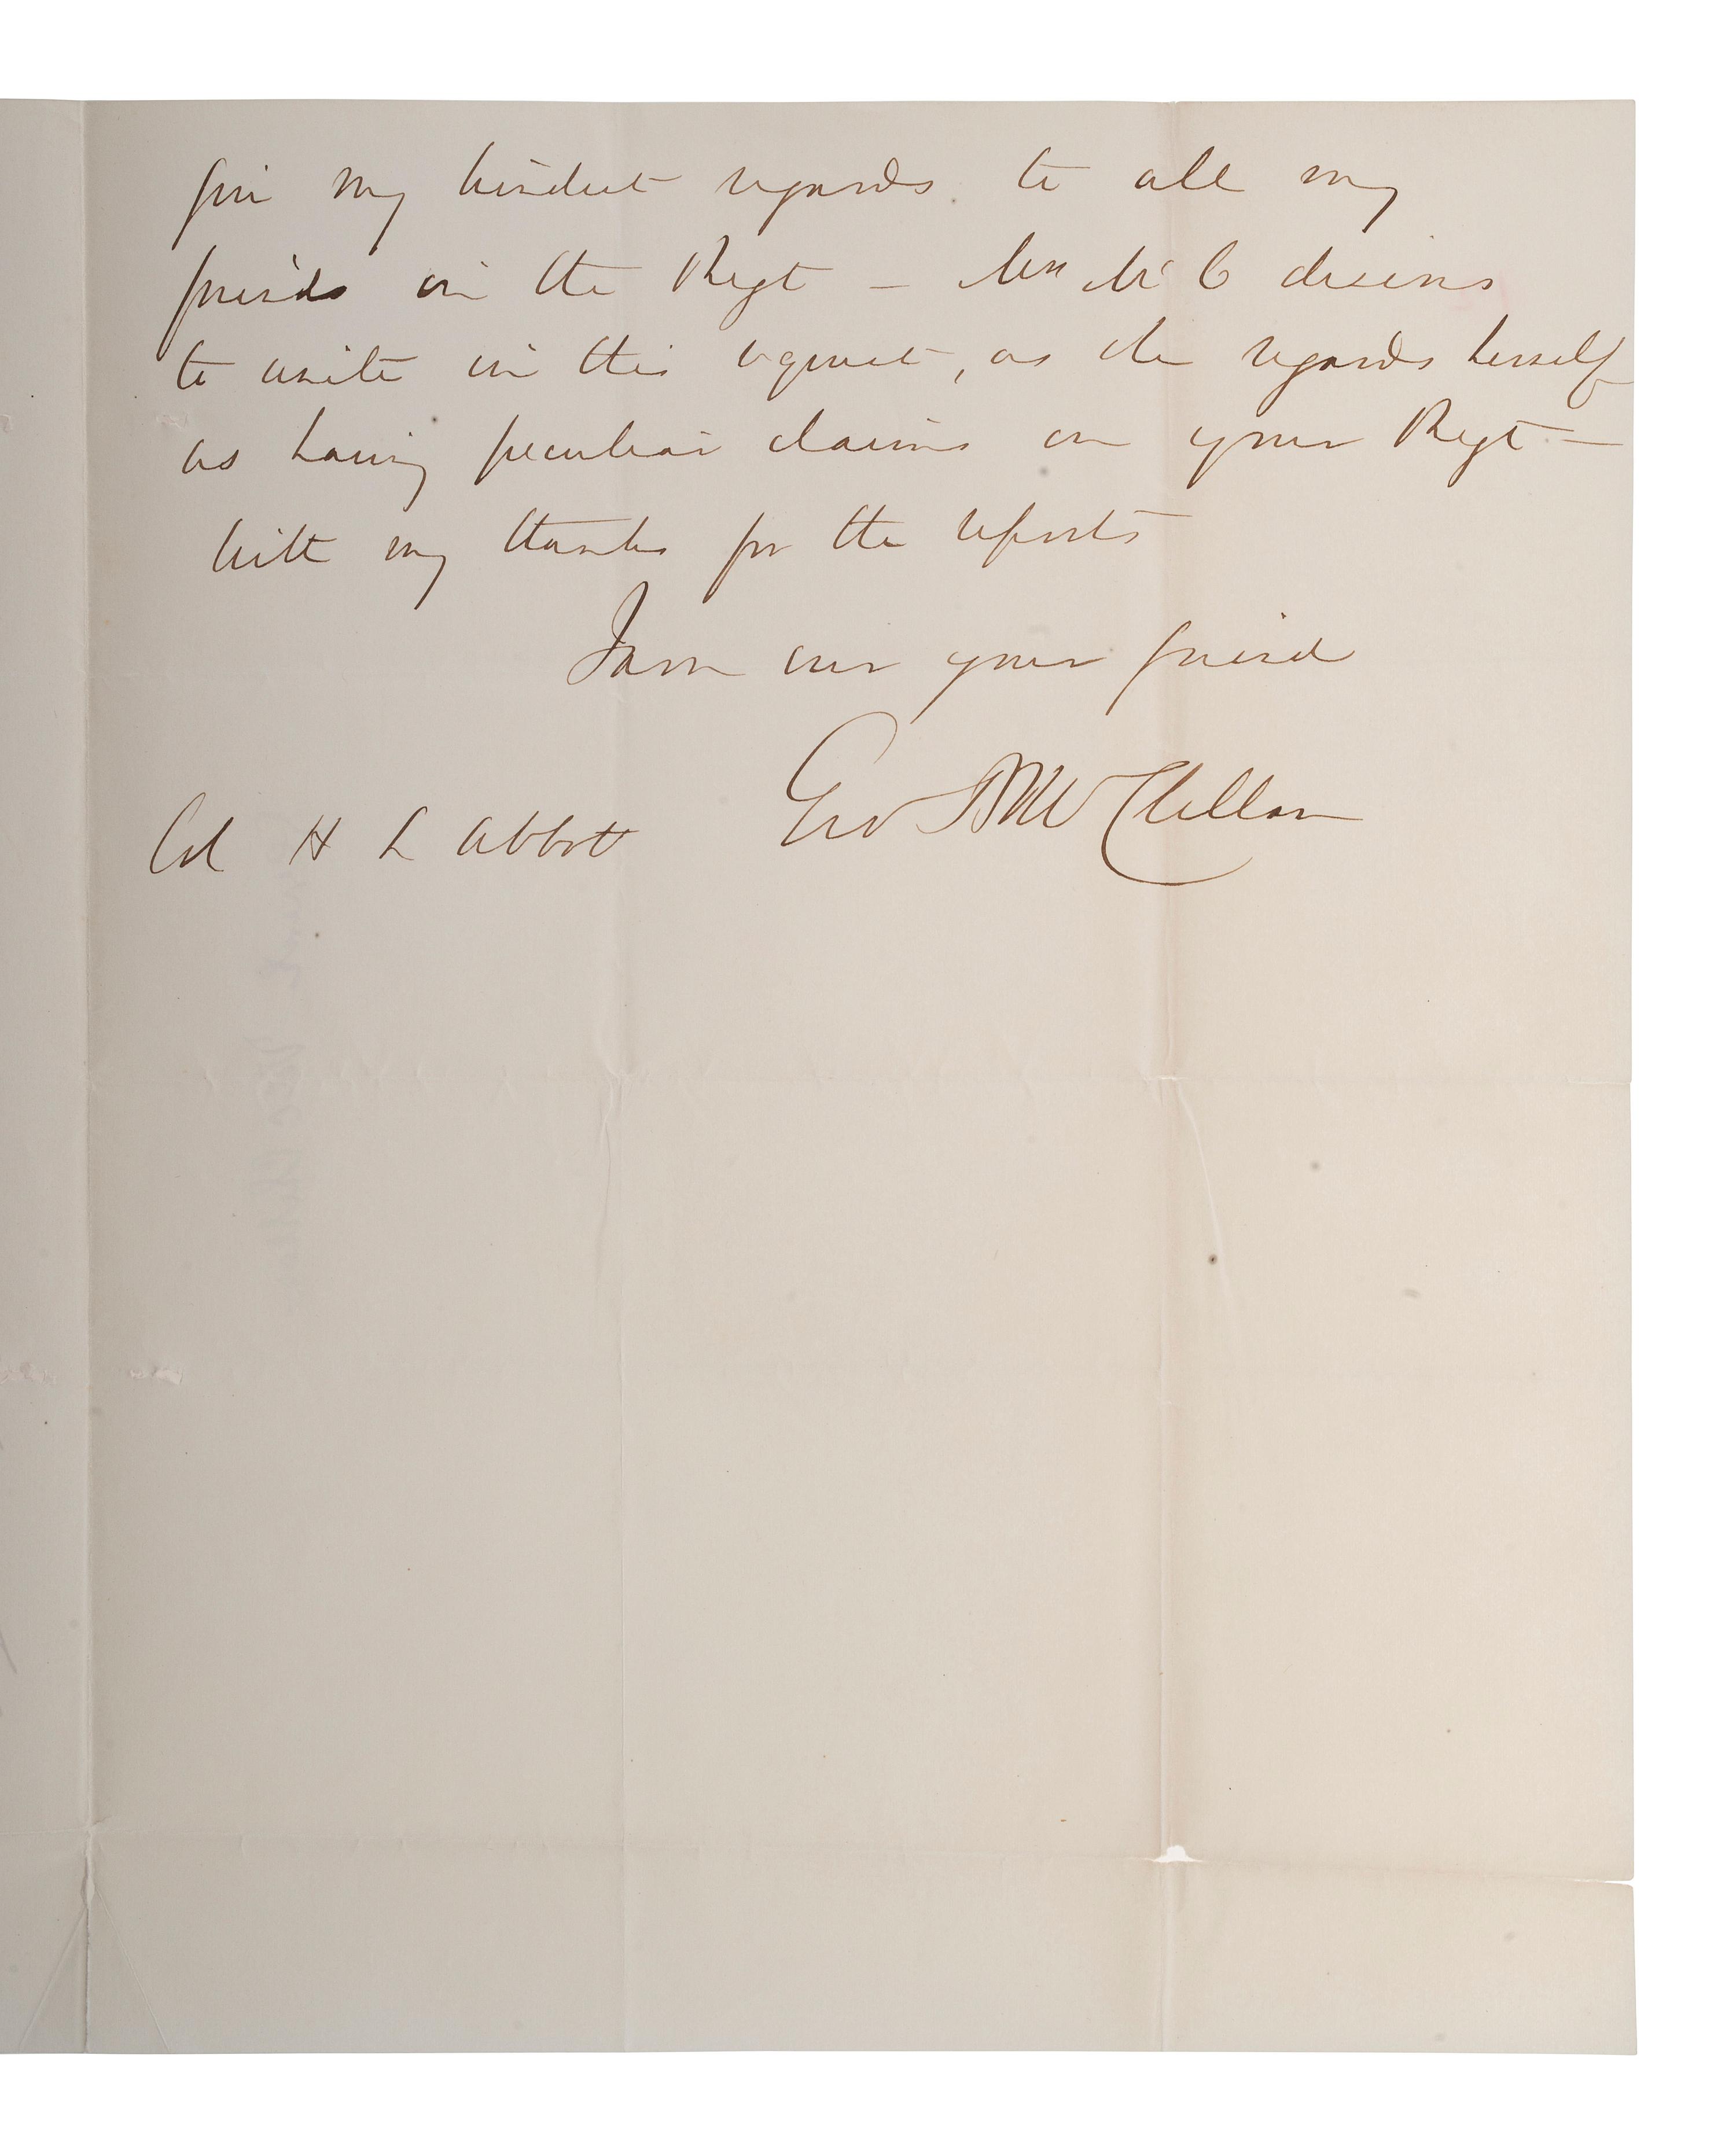 give my kindest regards to all my
friends in the Regt — Mrs McC desires
to unite in this request, as she regards herself
as having peculiar claims on your Regt —
With my thanks for the reports
I am ever your friend
Geo B McClellan
Col H L Abbott